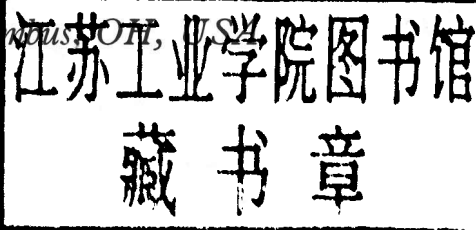 mbus, OH, USA
江苏工业学院图书馆
藏书章